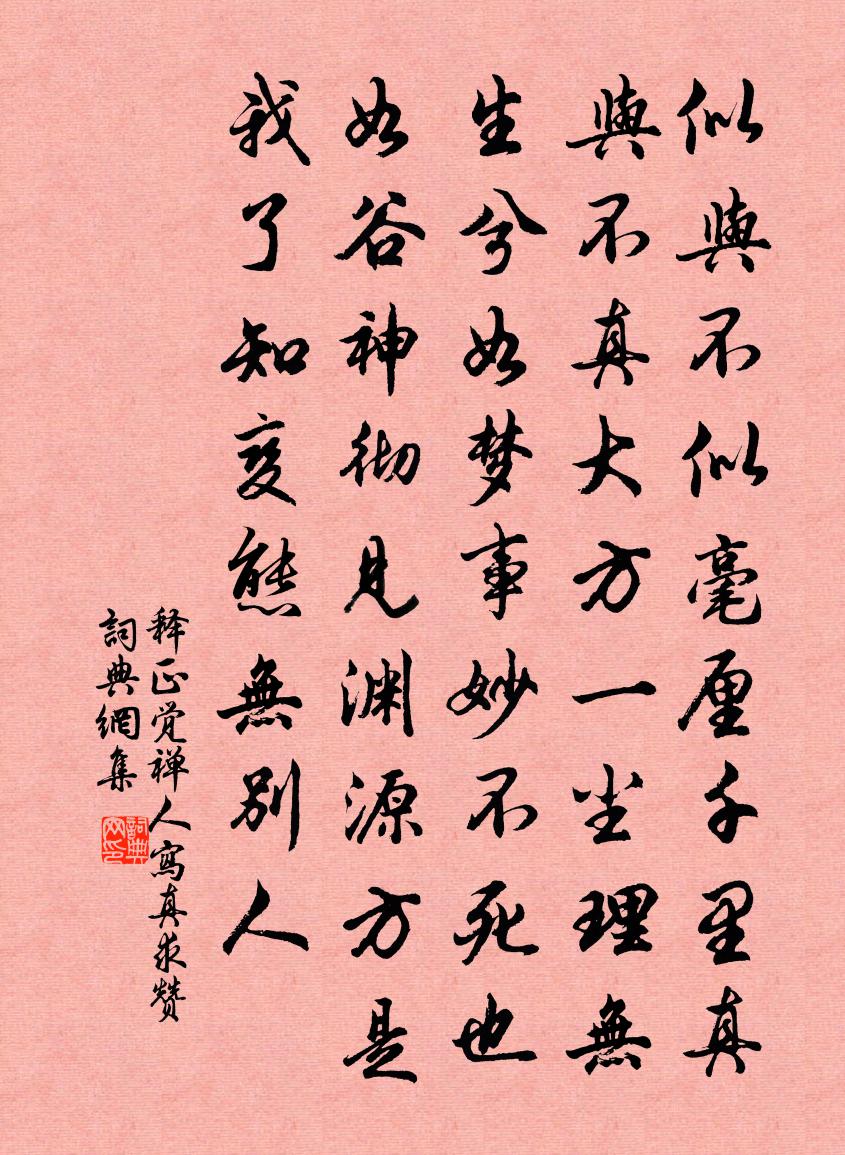 似與不似毫厘千里真
與不真大方一尘理無
生兮如梦事妙不死也
如谷神彻見渊源方是
我了知变態無别人
释正觉禅人寫真求赞
詞典網集
詞典网印